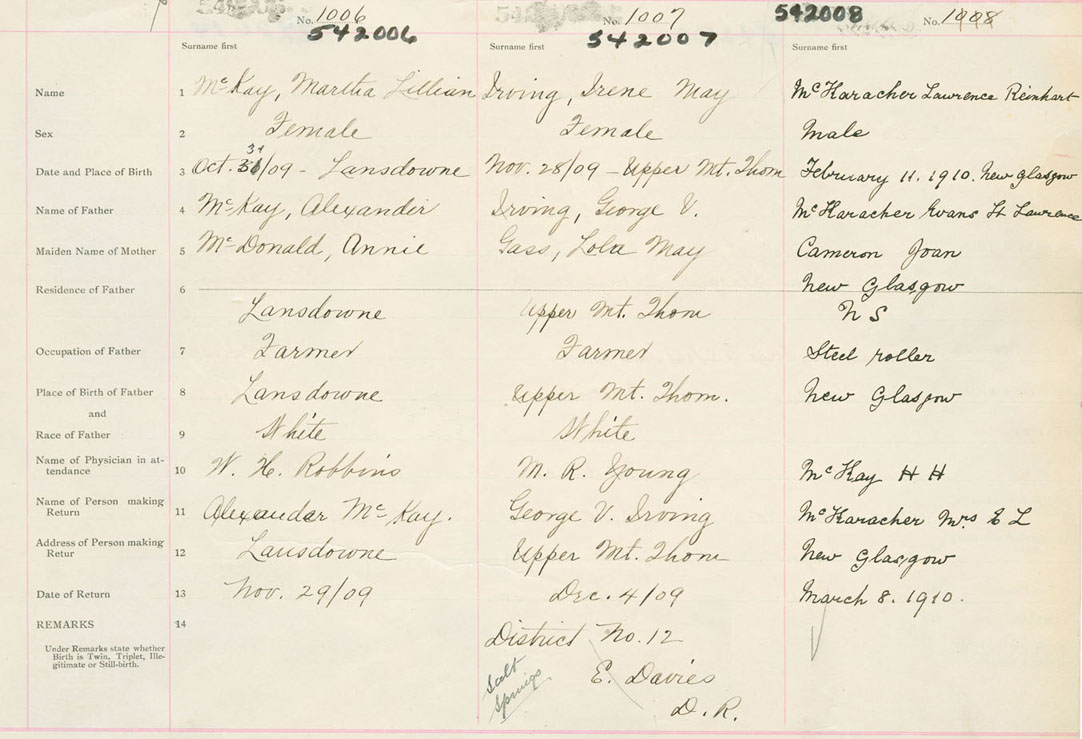 No. 1006 No. 1007 542008 No. 1008
542006 542007
Surname first Surname first Surname first
Name 1 McKay, Martha Lillian Irving, Irene May McKaracher Lawrence Reinhart
Sex 2 Female Female Male
Date and Place of Birth 3 Oct. 31/09 - Lansdowne Nov. 28/09 - Upper Mt. Thom February 11. 1910. New Glasgow
Name of Father 4 McKay, Alexander Irving, George V. McKaracher Evans St Lawrence
Maiden Name of Mother 5 McDonald, Annie Gass, Lola May Cameron Joan
Residence of Father 6 New Glasgow
Lansdowne Upper Mt. Thom N S
Occupation of Father 7 Farmer Farmer Steel roller
Place of Birth of Father 8 Lansdowne Upper Mt. Thom. New Glasgow
and
Race of Father 9 White White
Name of Physician in at-
tendance 10 W. H. Robbins M. R. Young McKay H H
Name of Person making
Return 11 Alexander McKay. George V. Irving McKaracher Mrs E L
Address of Person making
Retur 12 Lansdowne Upper Mt. Thom New Glasgow
Date of Return 13 Nov. 29/09 Dec. 4/09 March 8. 1910.
REMARKS 14
District No. 12
Under Remarks state whether
Birth is Twin, Triplet, Ille-
gitimate or Still-birth.
Salt
Springs
E. Davies
D. R.